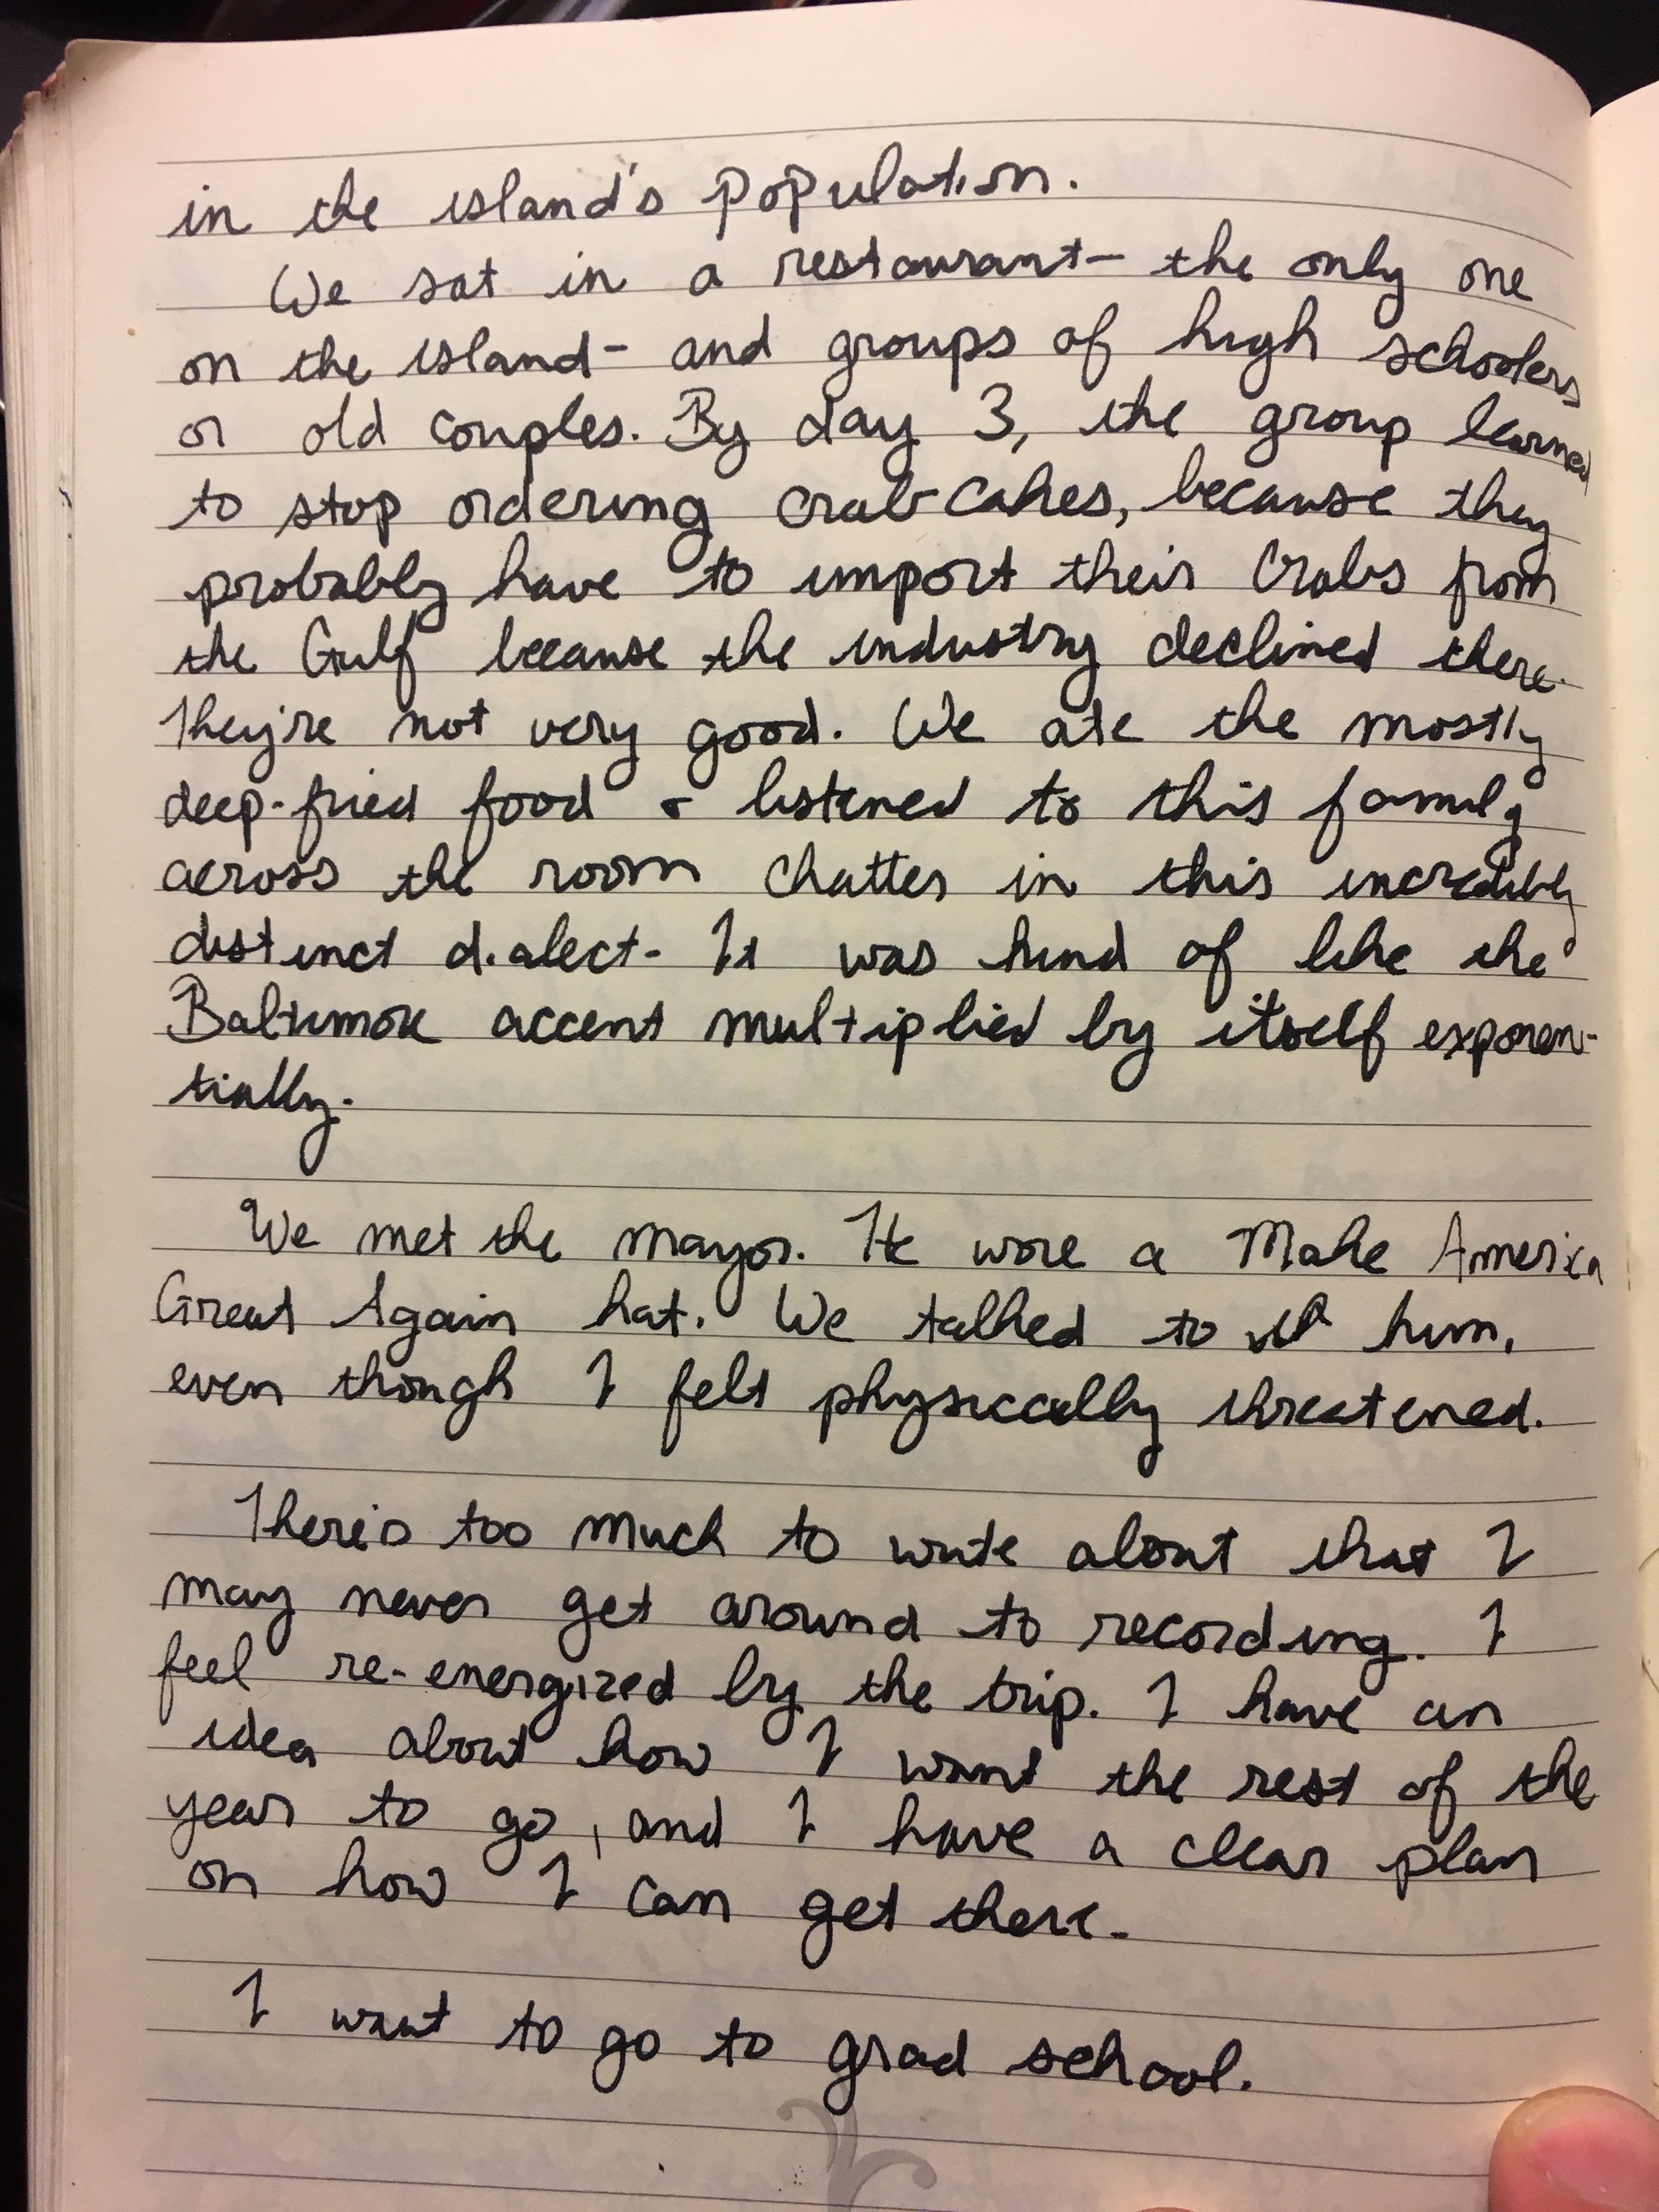 in the island's population.
We sat in a restaurant- the only one
on the island- and groups of high schoolers
or old couples. By day 3, the group learned
to stop ordering crab cakes, because they
probably have to import their crabs from
the Gulf because the industry declined there.
They're not very good. We ate the mostly
deep-fried food & listened to this family
across the room chatter in this incredibly
distinct dialect- It was kind of like the
Baltimore accent multiplied by itself exponen-
tially.
We met the mayor. He wore a Make America
Great Again hat. We talked to him,
even though I felt physically threatened.
There's too much to write about that I
may never get around to recording. I
feel re-energized by the trip. I have an
idea about how I want the rest of the
year to go, and I have a clear plan
on how I can get there.
I want to go to grad school.